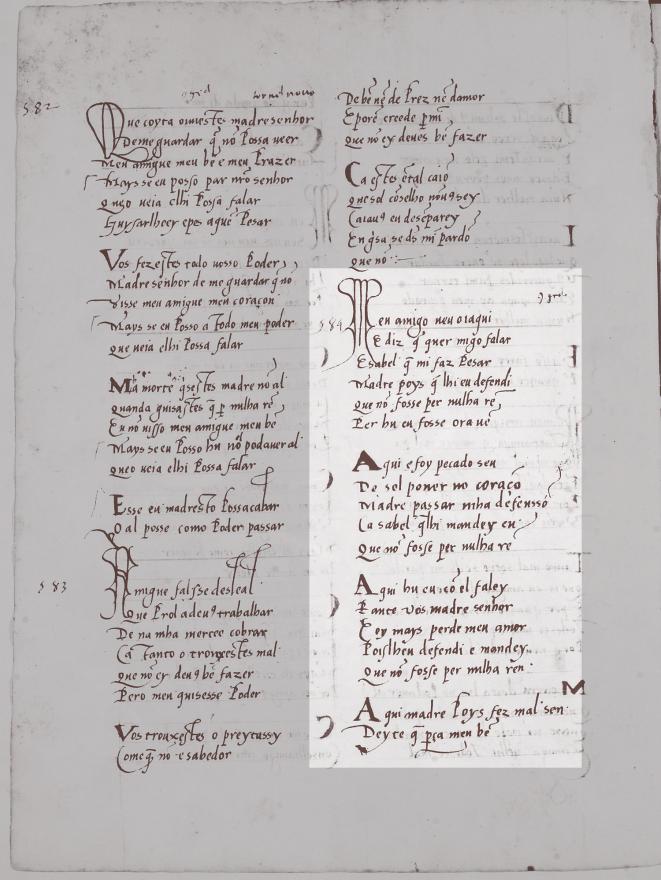 582
Que coyta ouuestes madresenhor
De me guardar q̃ nõ Possa ueer
Meu amigue meu bẽ e meu Prazer
Mays se eu posso par nr̃o senhor
Queo ueia elhi Possa falar
Guysarlheey epes aque Pesar
Vos fezestes todo uosso Poder
Madre senhor de me guardar q̃ nõ
Visse meu amigue meu coraçon
Mays se eu Posso a Todo meu poder
Que ueia elhi Possa falar
Mha morte q̃sestes madre nõ al
Quando guisastes q̃ ꝑ nulha rẽ
Eu nõ uisso meu amigue meu bẽ
Mays se eu Posso hu nõ podauer al
Queo ueia elhi Possa falar
Esse eu madresto Possacabar
O al posse como Poder passar
583
Amigue falsse desleal
Que Prol a deu9 trabalhar
De na mha mercee cobrar
Ca Tanto o trouxestes mal
Que nõ ey deu9 bẽ fazer
Pero meu quisesse Poder
Vos trouxestes o preytassy
Come q̃ nõ e sabedor
De bẽ nẽ de Prez nẽ damor
E porẽ creede ꝑ mi
Que nõ ey deues bẽ fazer
Ca estes en tal caio
Que sol cõselho nou9 sey
Ca iau9 eu deseparey
En gsa se ds̃ mi pardõ
Que nõ
584
Meu amigo ueu oiaqui
E diz q̃ quer migo falar
E sabel q̃ mi faz Pesar
Madre poys q̃ lhi eu defendi
Que nõ fosse per nulha rẽ
Per hu eu fosse ora uẽ
Aqui e foy pecado seu
De sol poner no coraçõ
Madre passar mha defenssõ
Ca sabel q̃lhi mandey eu
Que nõ fosse per nulha rẽ
Aqui hu eu cõ el faley
Perante uos madre senhor
E oy mays perde meu amor
Pois lheu defendi e mandey
Que nõ fosse per nulha ren
Aqui madre Poys fez mal sen
Deyte q̃ ꝑça meu bẽ